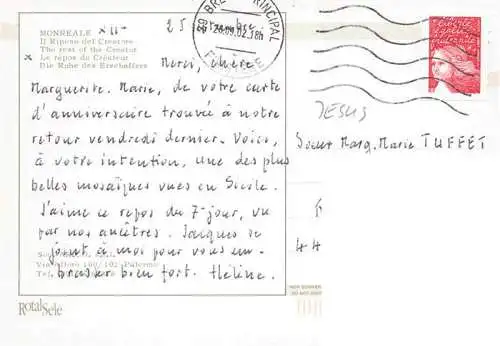 MONREALE XII-
Il Riposo del Creatore
The rest of the Creator
x Le repos du Créateur
Die Ruhe des Erschaffers
25 septembre
BREST PRINCIPAL
26.09.02.18h
FINISTERE
Merci, chère
Marguerite. Marie, de votre carte
d'anniversaire trouvée à notre
retour vendredi dernier. Voici,
à votre intention, une des plus
belles mosaïques vues en Sicile.
J'aime ce repos du 7e jour, vu
par nos ancêtres. Jacques se
joint à moi pour vous em-
brasser bien fort. Hélène.
JESUS
Soeur Marg. Marie TUFFET
44
Palermo
RotalSele